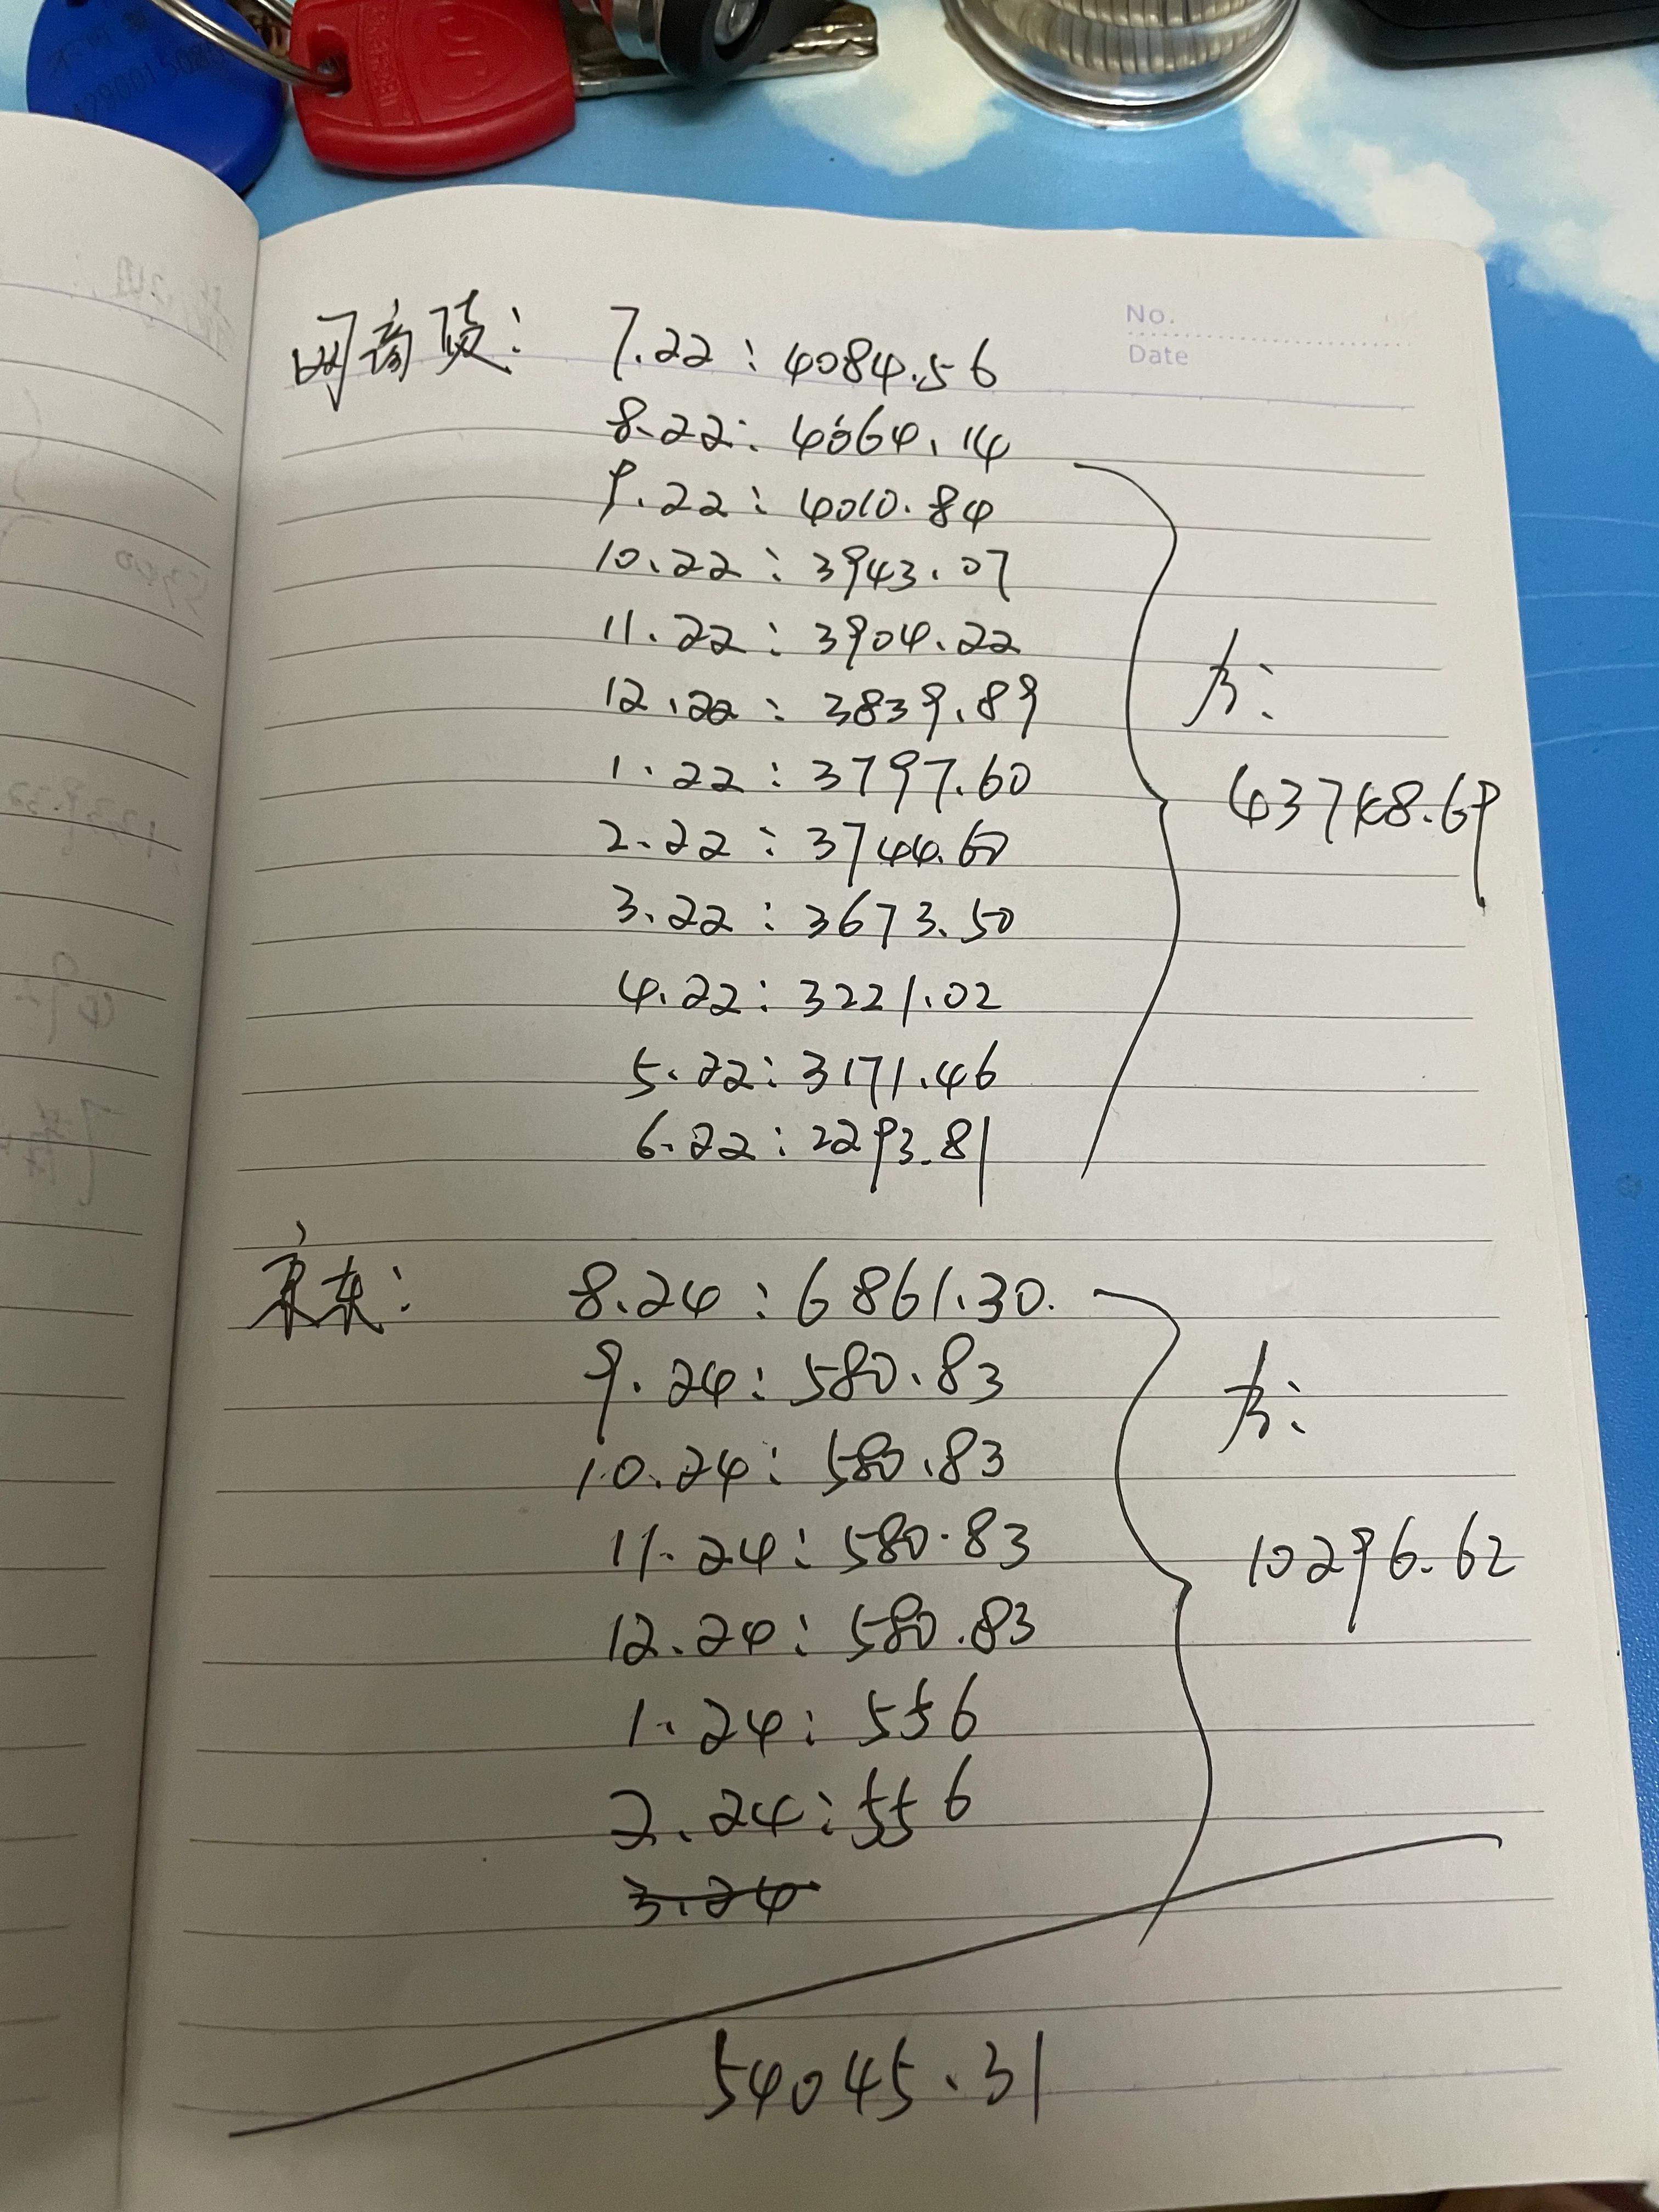 No.
Date
网商贷: 7.22: 4084.56
8.22: 4064.14
9.22: 4010.84
10.22: 3943.07
11.22: 3904.22
12.22: 3839.89
1.22: 3797.60
2.22: 3744.60
3.22: 3673.50
4.22: 3221.02
5.22: 3171.46
6.22: 2293.81
为:
43748.69
京东: 8.24: 6861.30.
9.24: 580.83
10.24: 580.83
11.24: 580.83
12.24: 580.83
1.24: 556
2.24: 556
3.24
为:
10296.62
54045.31